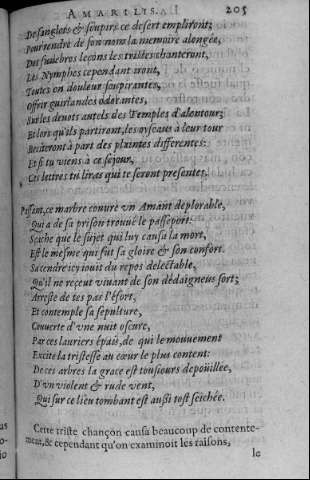 AMARILIS. 205
De sanglots & soupirs ce desert empliront;
Pour rendre de son nom la memoire alongée,
Des funebres leçons les tristes chanteront,
Les Nymphes cependant iront,
Toutes en douleur soupirantes,
Offrir guirlandes odorantes,
Sur les deuots autels des Temples d'alentour;
Et lors qu'els partiront, les oyseaux à leur tour
Reciteront à part des plaintes differentes:
Et si tu viens à ce sejour,
Ces lettres tu liras qui te seront presentes.
Passant, ce marbre couure vn Amant deplorable,
Qui a de sa prison trouué le passeport:
Sçache que le sujet qui luy causa la mort,
Est le mesme qui fut sa gloire & son confort.
Sa cendre icy iouit du repos delectable,
Qu'il ne reçeut viuant de son dédaigneus sort;
Arreste de tes pas l'éfort,
Et contemple sa sepulture,
Couuerte d'vne nuit oscure,
Par ces lauriers épais, de qui le mouuement
Excite la tristesse au cœur le plus content:
De ces arbres la grace est tousiours depouillée,
D'vn violent & rude vent,
Qui sur ce lieu tombant est außi tost seichée.
Cette triste chançon causa beaucoup de contente-
ment, & cependant qu'on examinoit les raisons,
le
us
o-
io